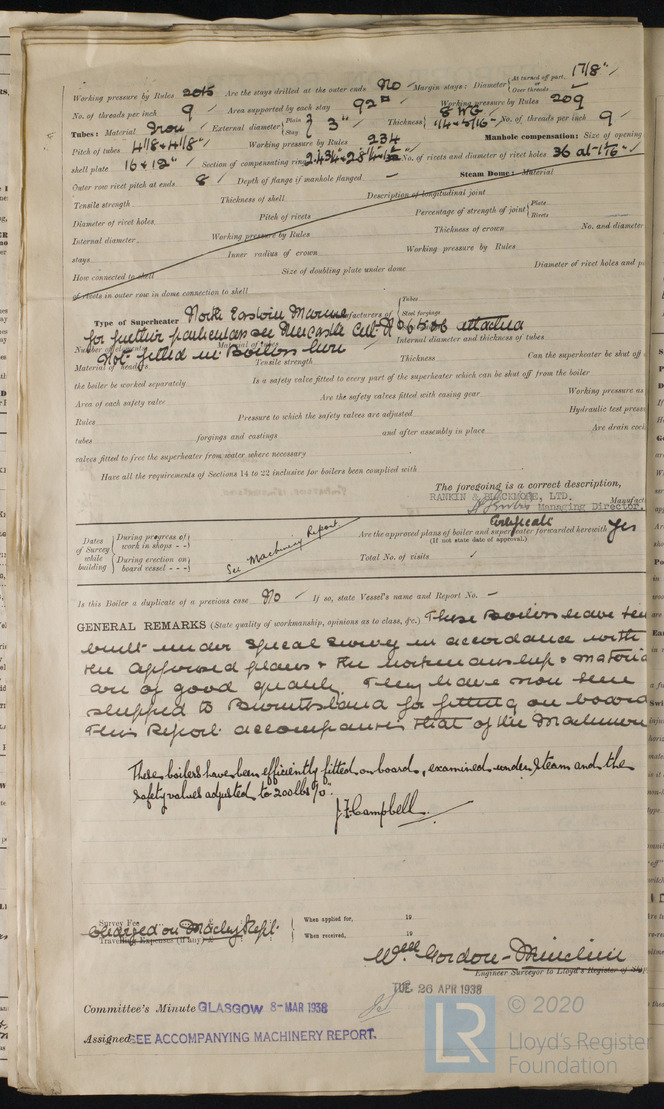 Working pressure by Rules 205 Are the stays drilled at the outer ends No Margin stays: Diameter { At turned off part, 1 7/8"
Over threads
No. of threads per inch 9 Area supported by each stay 92□" Working pressure by Rules 209
Tubes: Material Iron External diameter { Plain Stay } 3" Thickness { 8 WG 1/4 & 5/16 No. of threads per inch 9
Pitch of tubes 4 1/8 & 4 1/8" Working pressure by Rules 234 Manhole compensation: Size of opening
shell plate 16 & 12" Section of compensating ring No. of rivets and diameter of rivet holes 36 at 1 1/16"
Outer row rivet pitch at ends 8 Depth of flange if manhole flanged – Steam Dome: Material
Tensile strength Thickness of shell Description of longitudinal joint
Diameter of rivet holes Pitch of rivets Percentage of strength of joint { Plate Rivets
Internal diameter Working pressure by Rules Thickness of crown No. and diameter
stays Inner radius of crown Working pressure by Rules
How connected to shell Size of doubling plate under dome Diameter of rivet holes and
of rivets in outer row in dome connection to shell
Type of Superheater North Eastern Marine Manufacturers of { Tubes
Steel forgings
for further particulars see Newcastle Cert No attached
Number of elements Material of tubes Internal diameter and thickness of tubes
Not fitted in Boilers here
Material of headers Tensile strength Thickness Can the superheater be shut off
the boiler be worked separately Is a safety valve fitted to every part of the superheater which can be shut off from the boiler
Area of each safety valve Are the safety valves fitted with easing gear Working pressure as
Rules Pressure to which the safety valves are adjusted Hydraulic test
tubes forgings and castings and after assembly in place Are drain
valves fitted to free the superheater from water where necessary
Have all the requirements of Sections 14 to 22 inclusive for boilers been complied with
The foregoing is a correct description,
RANKIN & BLACKMORE, LTD.
Managing Director.
Dates of Survey while building { During progress of work in shops - -
During erection on board vessel - - -
See Machinery Report
Certificate
Are the approved plans of boiler and superheater forwarded herewith Yes
(If not state date of approval.)
Total No. of visits
Is this Boiler a duplicate of a previous case No If so, state Vessel's name and Report No. –
GENERAL REMARKS (State quality of workmanship, opinions as to class, &c.) These Boilers have
built under Special Survey in accordance with
the approved plans & the workmanship & materia
are of good quality. They have now been
shipped to Burntisland for fitting on board
This Report accompanies that of the
These boilers have been efficiently fitted on board, examined under steam and the
safety valves adjusted to 200 lbs/□".
J. F. Campbell.
Survey Fee
Charged on Machy Rept.
Travelling Expenses (if any) £
When applied for, 19
When received, 19
Wm Gordon-
Engineer Surveyor to Lloyd's Register of
TUE. 26 APR 1938
Committee's Minute GLASGOW 8-MAR 1938
Assigned SEE ACCOMPANYING MACHINERY REPORT.
LR
© 2020
Lloyd's Register
Foundation